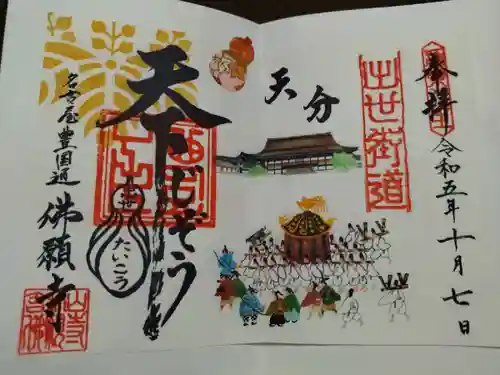 奉拝
令和五年十月七日
出世街道
天分
天下じぞう
出世
たいこう
名古屋豊国道
佛願寺